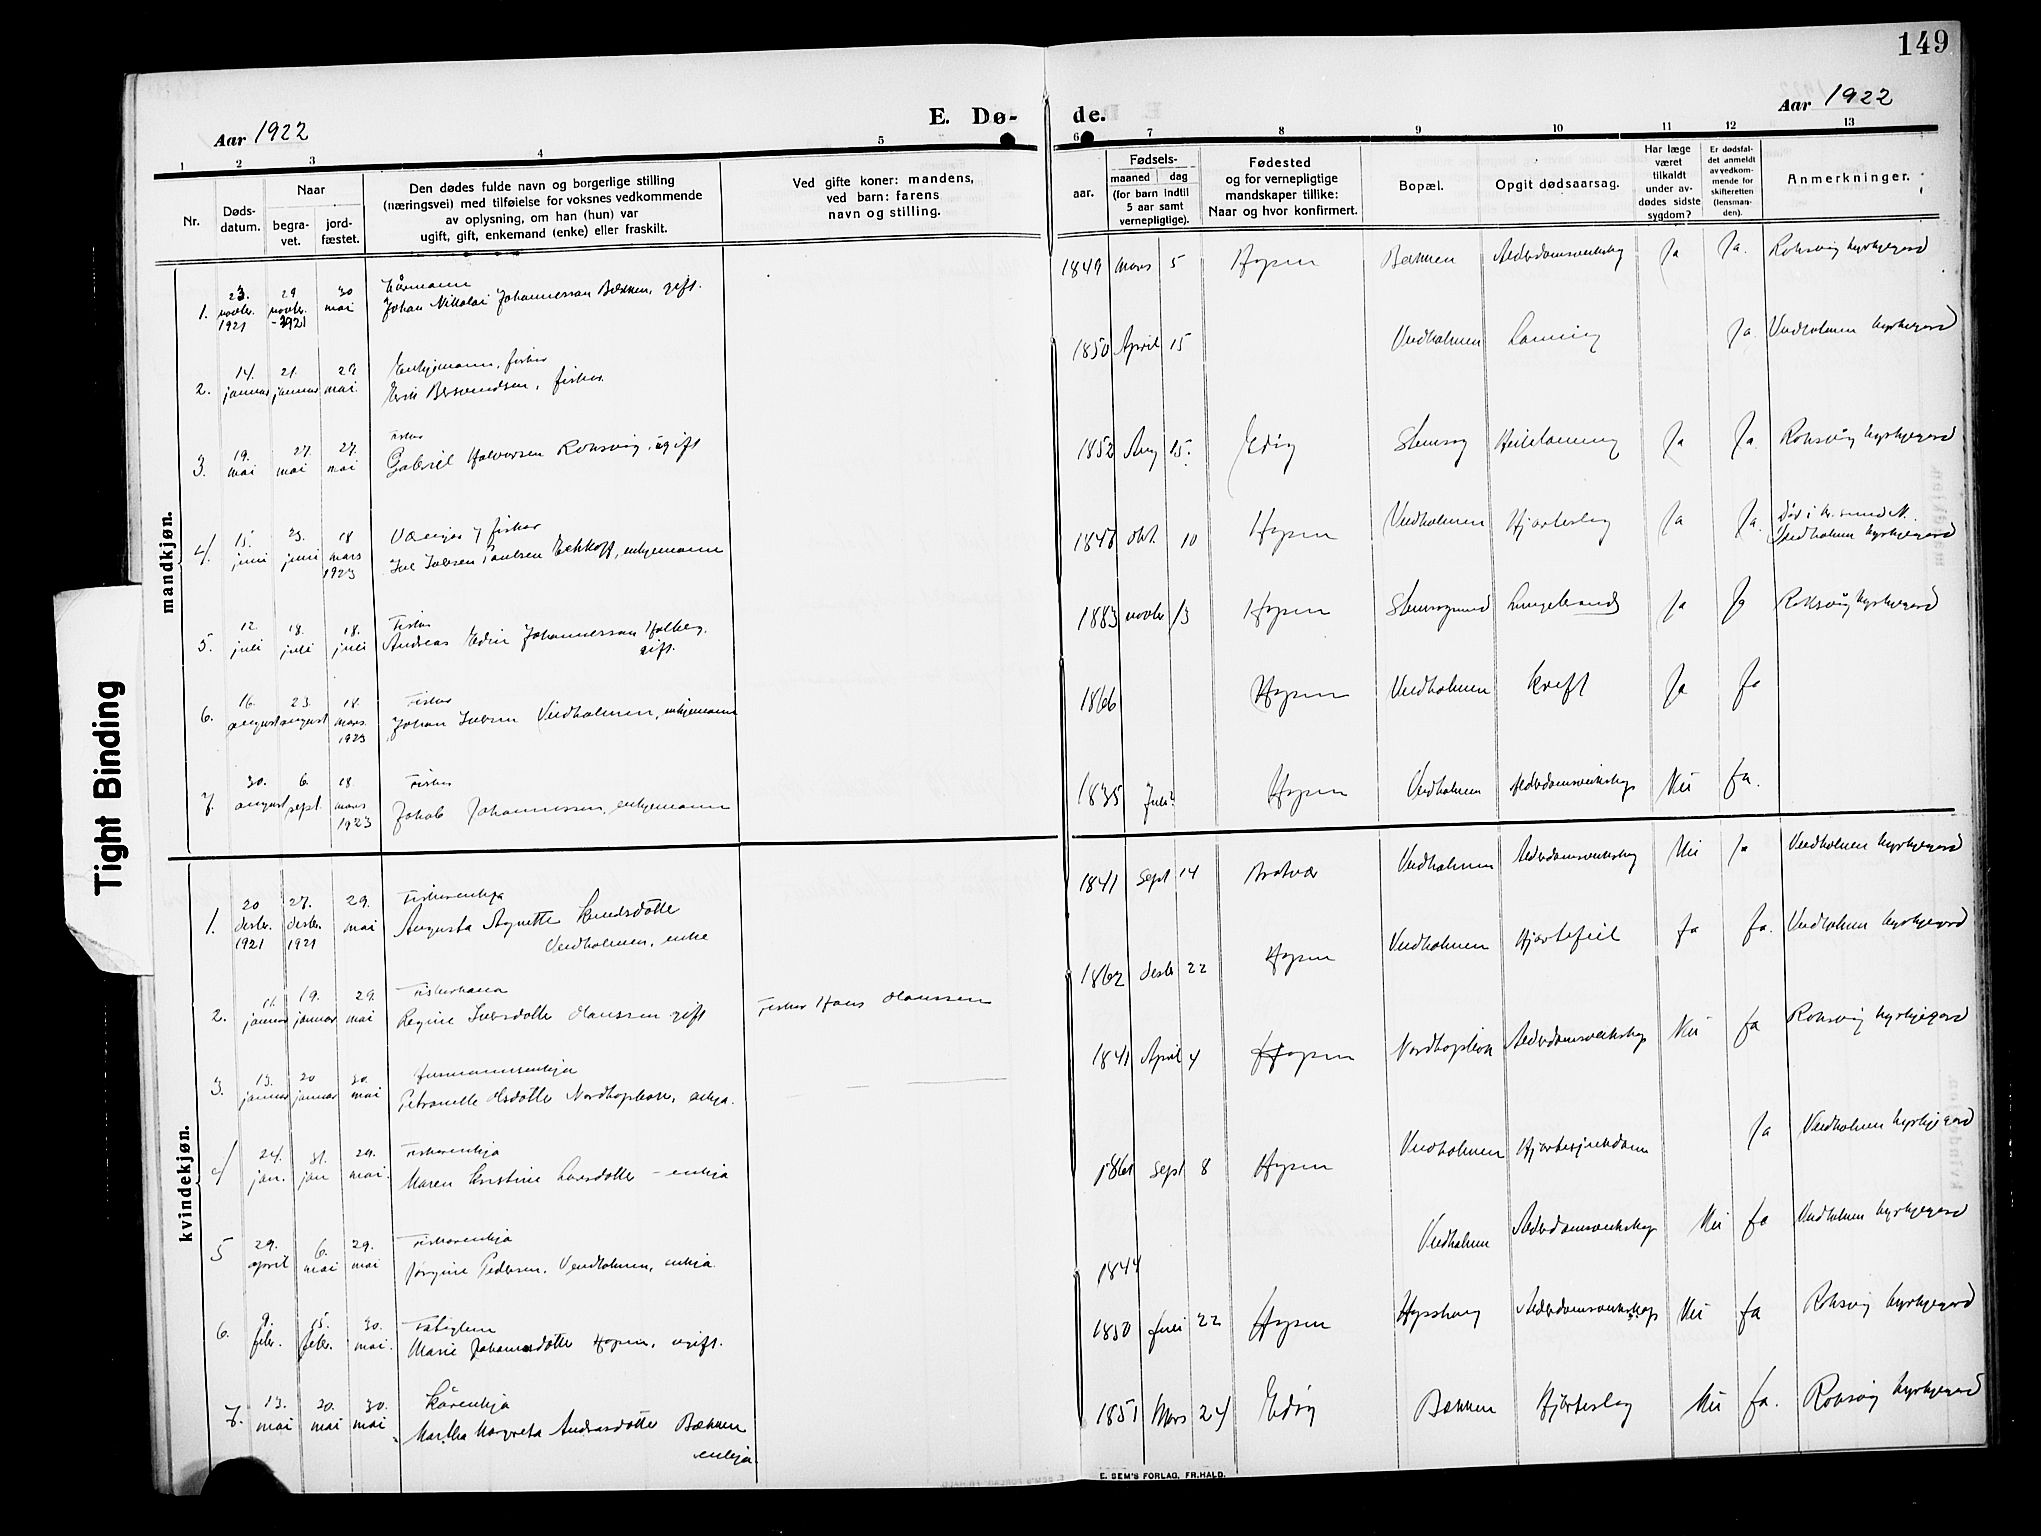 149
Aar 1922
E. Dø-
de.
Aar 1922
1 2 3 4 5 6 7 8 9 10 11 12 13
Nr.
Døds-
datum.
Naar
begra-
vet.
jord-
fæstet.
Den dødes fulde navn og borgerlige stilling
(næringsvei) med tilføielse for voksnes vedkommende
av oplysning, om han (hun) var
ugift, gift, enkemand (enke) eller fraskilt.
Ved gifte koner: mandens,
ved barn: farens
navn og stilling.
aar.
Fødsels-
maaned dag
(for barn indtil
5 aar samt
vernepligtige).
Fødested
og for vernepligtige
mandskaper tillike:
Naar og hvor konfirmert.
Bopæl.
Opgit dødsaarsag.
Har læge
været
tilkaldt
under av-
dødes sidste
sygdom?
Er dødsfal-
det anmeldt
av vedkom-
mende for
skifteretten
(lensman-
den).
Anmerkninger.
mandkjøn.
1. 23. novbr. 1921 29 novbr. 1921 30 mai
Kårmann
Johan Nikolai Johannessen Bækken, gift.
1849 mars 5 Hopen Bækken Alderdomsveikskap Ja Ja. Roksvåg kyrkjegard
2. 14. januar 21. januar 29. mai
Enkjemann, fisker
Erik Berentsen, fisker
1850 April 15 Veidholmen Lamning Ja Veidholmen kyrkjegard
3. 19. mai 27. mai 27. mai
Fisker
Gabriel Halvorsen Roksvåg, ugift
1852 Aug 15. Edøy Stensøy Heilelamning Ja Ja. Roksvåg kyrkjegard
4. 15. juni 23. juni 18 mars 1923
Væreigar & fisker
Iver Iversen Paulsen Ekhoff, enkjemann
okt. 10 Hopen Veidholmen Hjarteslag Ja Ja. Død i Kr.sund N.
Veidholmen kyrkjegard
5. 12. juli 18. juli 18. juli
Fisker
Andreas Edin Johannessen Holberg.
gift.
1883 novbr 13 Hopen Stensøysund Lungebrand Ja Ja Roksvåg kyrkjegard
6. 16. august 23. august 18. mars. 1923
Fisker
Johan Iversen Veidholmen, enkjemann
1866 Hopen Veidholmen kreft Ja Ja
7. 30. august 6. sept. 18. mars 1923
Fisker
Jakob Johannessen, enkjemann
1835 Juli 4 Hopen Veidholmen Alderdomsveikskap Nei Ja.
kvindekjøn.
1. 20 desbr. 1921 27. desbr. 1921 29. mai
Fiskerenkja
Augusta Agnette Knudsdatter
Veidholmen, enke
1841 Sept 14 Bratvær Veidholmen Alderdomsveikskap Nei Ja Veidholmen kyrkjegard
2. 11. januar 19. januar 29. mai
Fiskerkona
Regine Iversdatter Hanssen gift
Fisker Hans Hanssen
1862 desbr 22 Hopen Veidholmen Hjartefeil Ja Ja. Veidholmen kyrkjegard
3. 13. januar 20 januar 30. mai
Furmannsenkja
Petronelle Olsdatter Nordhopleen, enkja.
1841 April 4 Hopen Nordhopleen Alderdomsveikskap Nei Ja Roksvåg kyrkjegard
4 24. jan. 31. jan 29. mai.
Fiskerenkja
Maren Kristine Larsdatter - enkja
1861 Sept 8 Hopen Veidholmen Hjartesjukdom Ja Veidholmen kyrkjegard
5 29. april 6. mai 29. mai
Fiskerenkja
Jørgine Pedersen, Veidholmen, enkja.
1844 Veidholmen Alderdomsveikskap Nei Ja Veidholmen kyrkjegard
6. 9. febr. 15. febr. 30. mai.
Fatiglem
Marie Johannsdatter Hopen, ugift.
1850 Juli 22 Hopen Alderdomsveikskap Nei Ja Roksvåg kyrkjegard
7. 13. mai 20. mai 30. mai
Kårenkja
Martha Margreta Andreasdatter Bækken
enkja.
1851 Mars 24 Edøy Bækken Hjarteslag Nei Ja. Roksvåg kyrkjegard
E. SEM'S FORLAG, FR.HALD.
Tight Binding